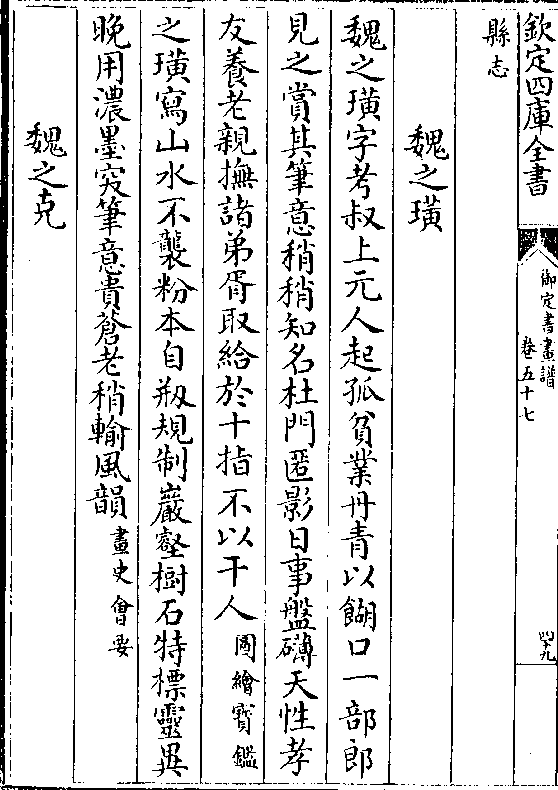 欽定四庫全書
御定書畫譜
卷五十七
四十九
縣志
魏之璜
魏之璜字考叔上元人起孤貧業丹青以餬口一部郎
見之賞其筆意稍稍知名杜門匿影日事盤礴天性孝
友養老親撫諸弟胥取給於十指不以干人圖繪寶鑑
之璜寫山水不襲粉本自剏規制巖壑樹石特標靈異
晚用濃墨㳄筆意貴蒼老稍輸風韻畫史會要
魏之克